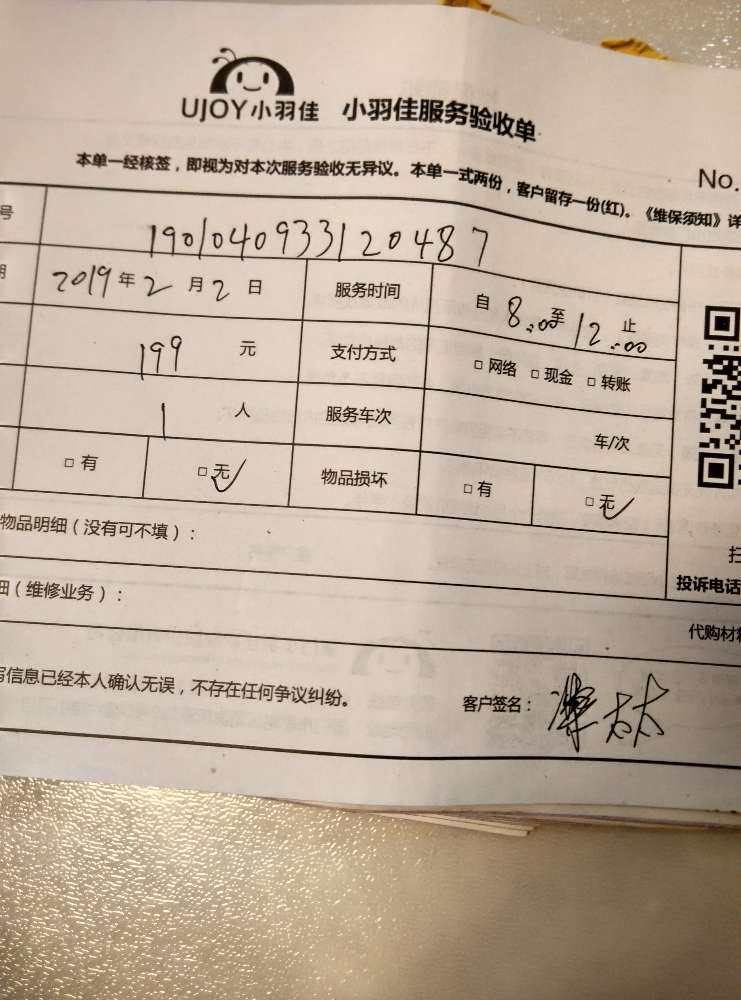 UJOY小羽佳 小羽佳服务验收单
No.
本单一经核签，即视为对本次服务验收无异议。本单一式两份，客户留存一份(红)。《维保须知》详
号 1901040933120487
期 2019年2月2日 服务时间 自8:00至12:00止
199元 支付方式 □网络 □现金 □转账
1人 服务车次 车/次
□有 □无✓ 物品损坏 □有 □无✓
物品明细（没有可不填）：
扫
细（维修业务）：
投诉电话
代购材料
写信息已经本人确认无误，不存在任何争议纠纷。
客户签名： 太太